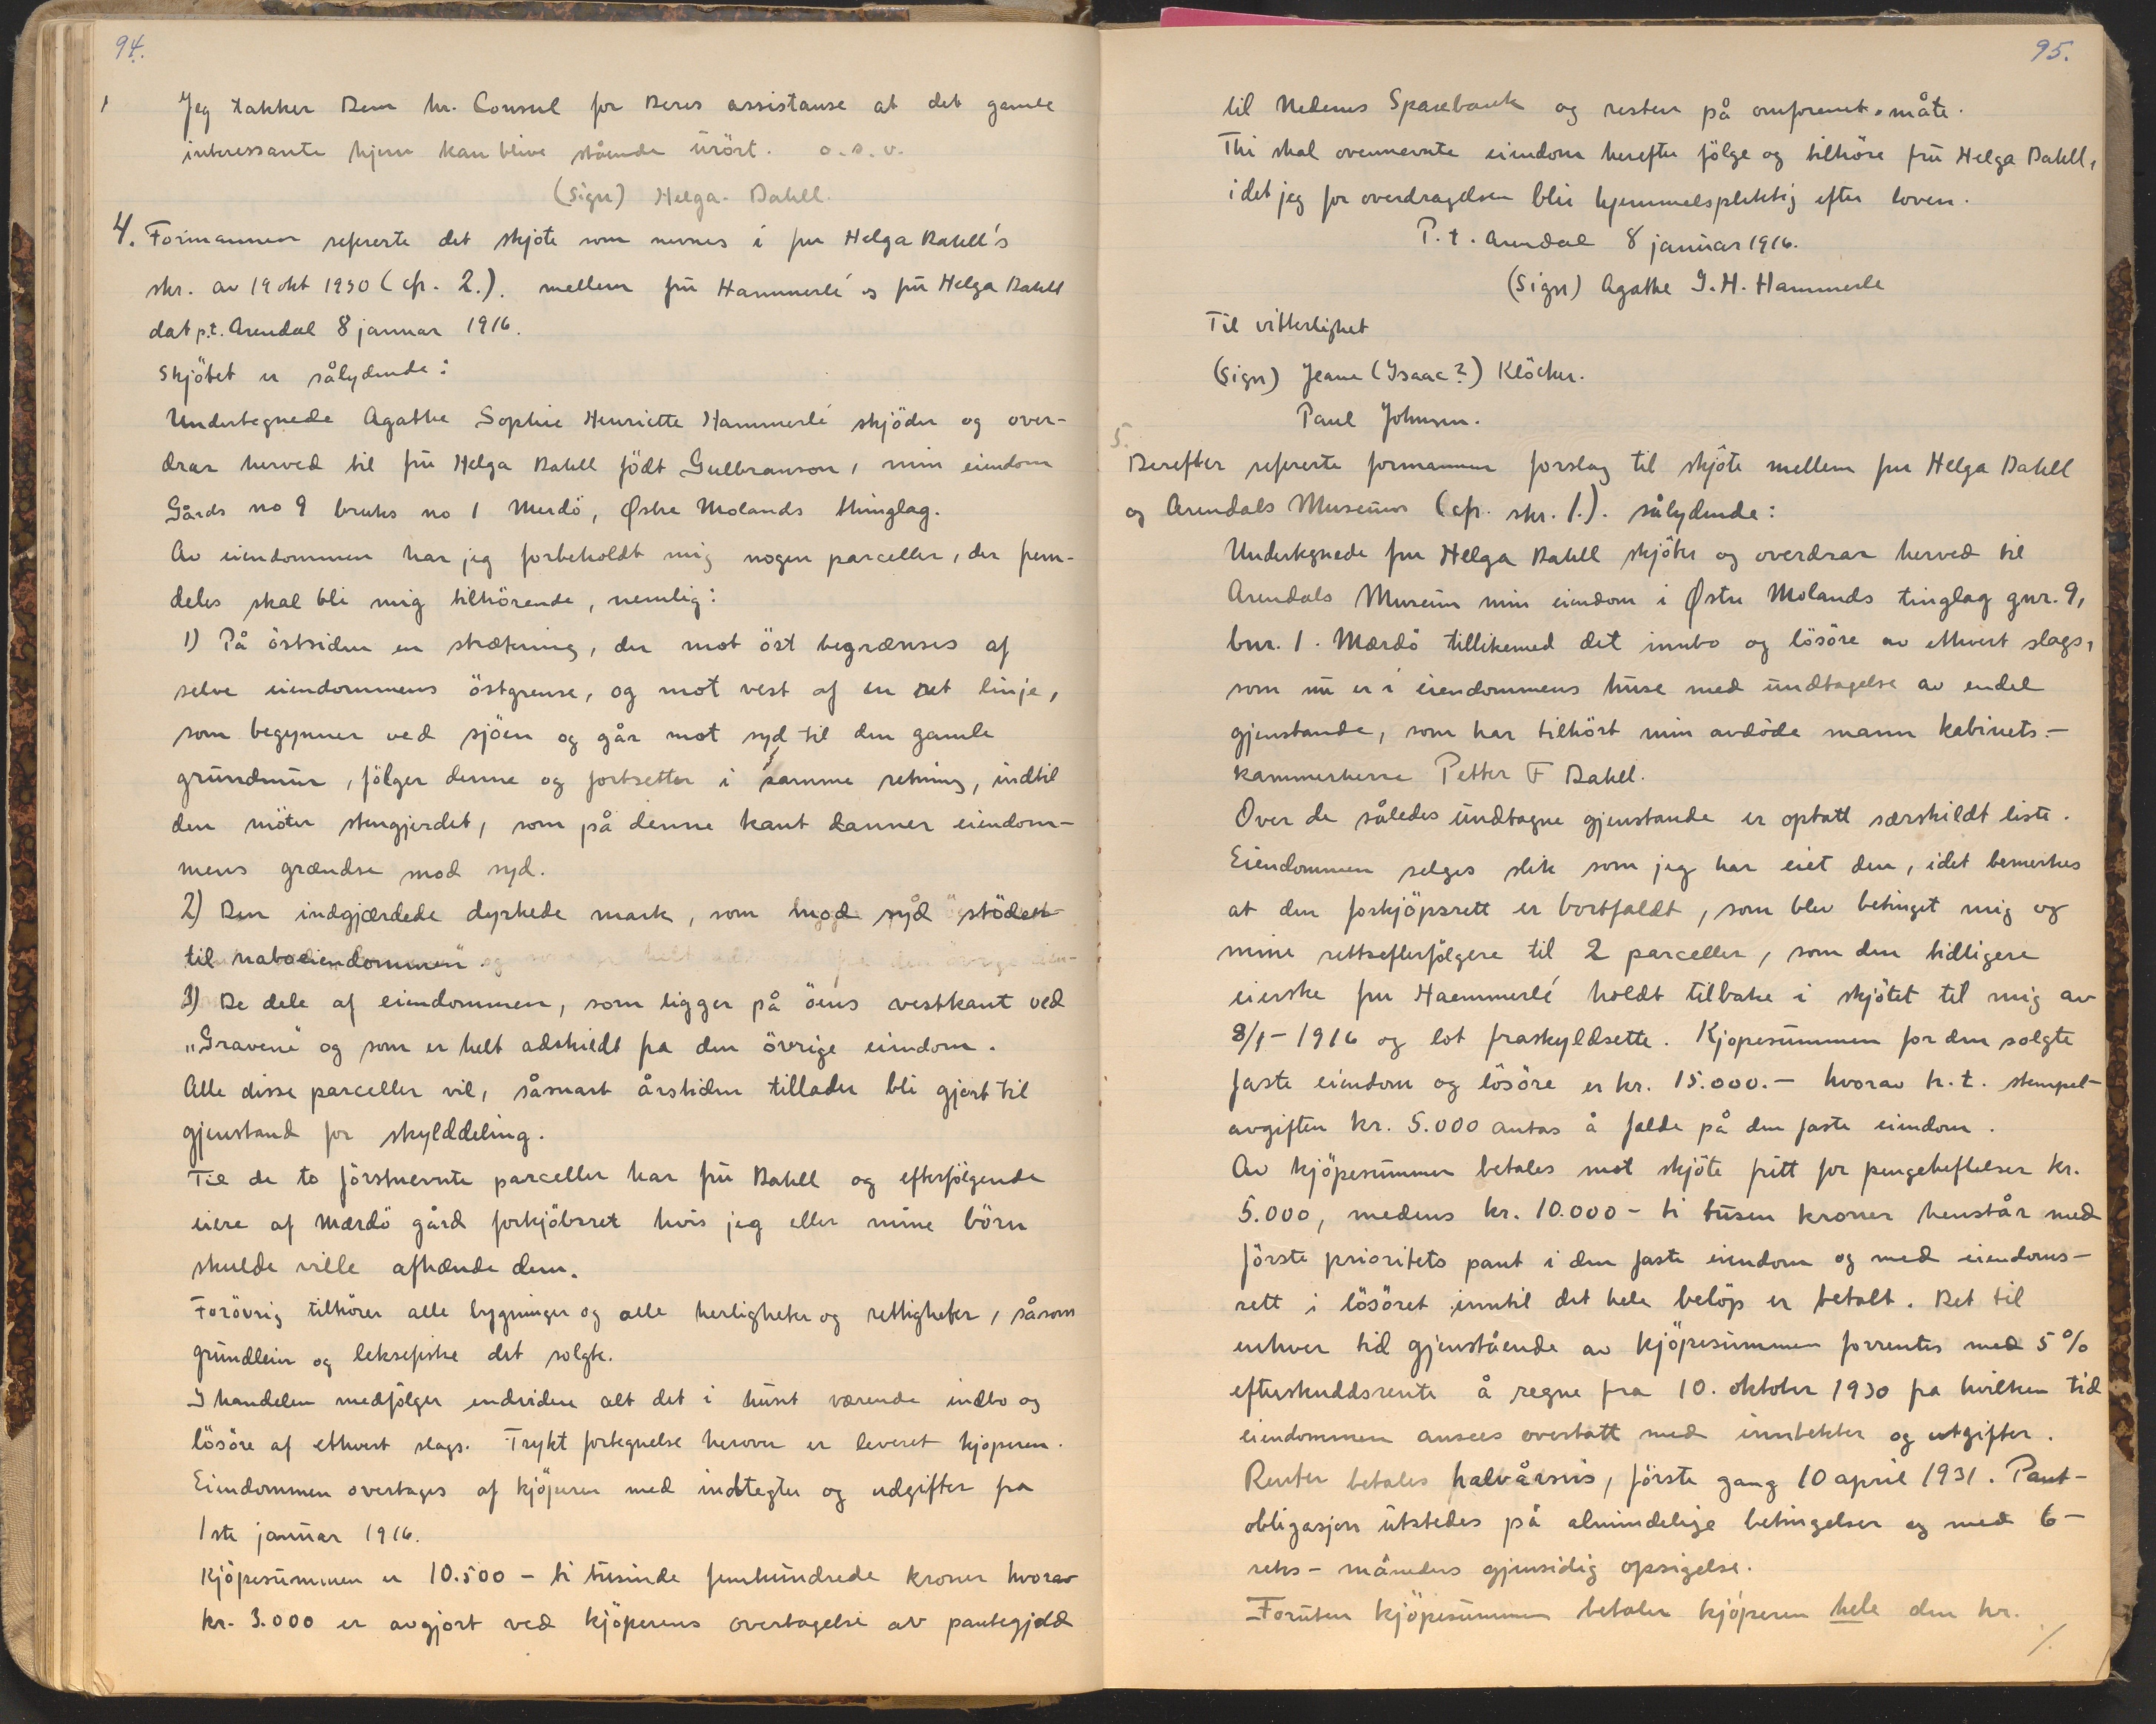 94.
Jeg takker Dem hr. Consul for Deres assistanse at det gamle
interessante hjem kan blive stående urört. o.s.v.
(Sign) Helga Dahll.
4. Formannen refererte det skjöte som nevnes i fru Helga Dahll's
skr. av 19 okt 1930 (cfr. 2.). mellem fru Hammerlé og fru Helga Dahll
dat p.t. Arendal 8 januar 1916.
Skjötet er sålydende:
Undertegnede Agathe Sophie Henriette Hammerlé skjöder og over-
drar herved til fru Helga Dahll födt Gulbranson, min eiendom
Gårds no 9 bruks no 1 Merdö, Østre Molands thinglag.
Av eiendommen har jeg forbeholdt mig nogen parceller, der frem-
deles skal bli mig tilhörende, nemlig:
1) På östsiden en strækning, der mot öst begrænses af
selve eiendommens östgrense, og mot vest af en ret linje,
som begynner ved sjöen og går mot syd til den gamle
grundmur, fölger denne og fortsetter i samme retning, indtil
den möter stengjerdet, som på denne kant danner eiendom-
mens grændse mod syd.
2) Den indgjærdede dyrkede mark, som mod syd stöder
til naboeiendommen".
3) De dele af eiendommen, som ligger på öens vestkant ved
"Gravene" og som er helt adskildt fra den övrige eiendom.
Alle disse parceller vil, såsnart årstiden tillader bli gjort til
gjenstand for skylddeling.
Til de to förstnevnte parceller har fru Dahll og efterfölgende
eiere af Mærdö gård forkjöbsret hvis jeg eller mine börn
skulde ville afhænde dem.
Forövrig tilhörer alle bygninger og alle herligheter og rettigheter, såsom
grundleie og laksefiske det solgte.
I handelen medfölger endvidere alt det i huset værende indbo og
lösöre af ethvert slags. Trykt fortegnelse herover er leveret kjöperen.
Eiendommen overtages af kjöperen med indtegter og udgifter fra
1ste januar 1916.
Kjöpesummen er 10.500 - ti tusinde femhundrede kroner hvorav
kr. 3.000 er avgjort ved kjöperens overtagelse av pantegjeld
95.
til Nedenes Sparebank og resten på omforenet måte.
Thi skal ovennevnte eiendom herefter fölge og tilhöre fru Helga Dahll,
idet jeg for overdragelsen blir hjemmelspliktig efter loven.
P.t. Arendal 8 januar 1916.
(Sign) Agathe S.H. Hammerle
Til vitterlighet
(Sign) Jeane (Isaac?) Klöcker.
Paul Johnsen.
5.
Derefter refererte formannen forslag til skjöte mellem fru Helga Dahll
og Arendals Museum (cfr. skr. 1.). sålydende:
Undertegnede fru Helga Dahll skjöter og overdrar herved til
Arendals Museum min eiendom i Østre Molands tinglag gnr. 9,
bnr. 1. Mærdö tillikemed det innbo og lösöre av ethvert slags,
som nu er i eiendommens huse med undtagelse av endel
gjenstande, som har tilhört min avdöde mann kabinets-
kammerherre Petter F Dahll.
Over de således undtagne gjenstande er optatt særskildt liste.
Eiendommen selges slik som jeg har eiet den, idet bemerkes
at den forkjöpsrett er bortfaldt, som blev betinget mig og
mine rettsefterfölgere til 2 parceller, som den tidligere
eierske fru Haemmerlé holdt tilbake i skjötet til mig av
8/1-1916 og lot fraskyldsette. Kjöpesummen for den solgte
faste eiendom og lösöre er kr. 15.000.- hvorav h.t. stempel-
avgiften kr. 5.000 antas å falde på den faste eiendom.
Av kjöpesummen betales mot skjöte fritt for pengeheftelser kr.
5.000, medens kr. 10.000 - ti tusen kroner henstår med
förste prioritets pant i den faste eiendom og med eiendoms-
rett i lösöret inntil det hele belöp er betalt. Det til
enhver tid gjenstående av kjöpesummen forrentes med 5%
efterskuddsrente å regne fra 10. oktober 1930 fra hvilken tid
eiendommen ansees overtatt med inntekter og utgifter.
Renter betales halvårsvis, förste gang 10 april 1931. Pant-
obligasjon utstedes på almindelige betingelser og med 6-
seks- måneders gjensidig opsigelse.
Foruten kjöpesummen betaler kjöperen hele den hr.
./.